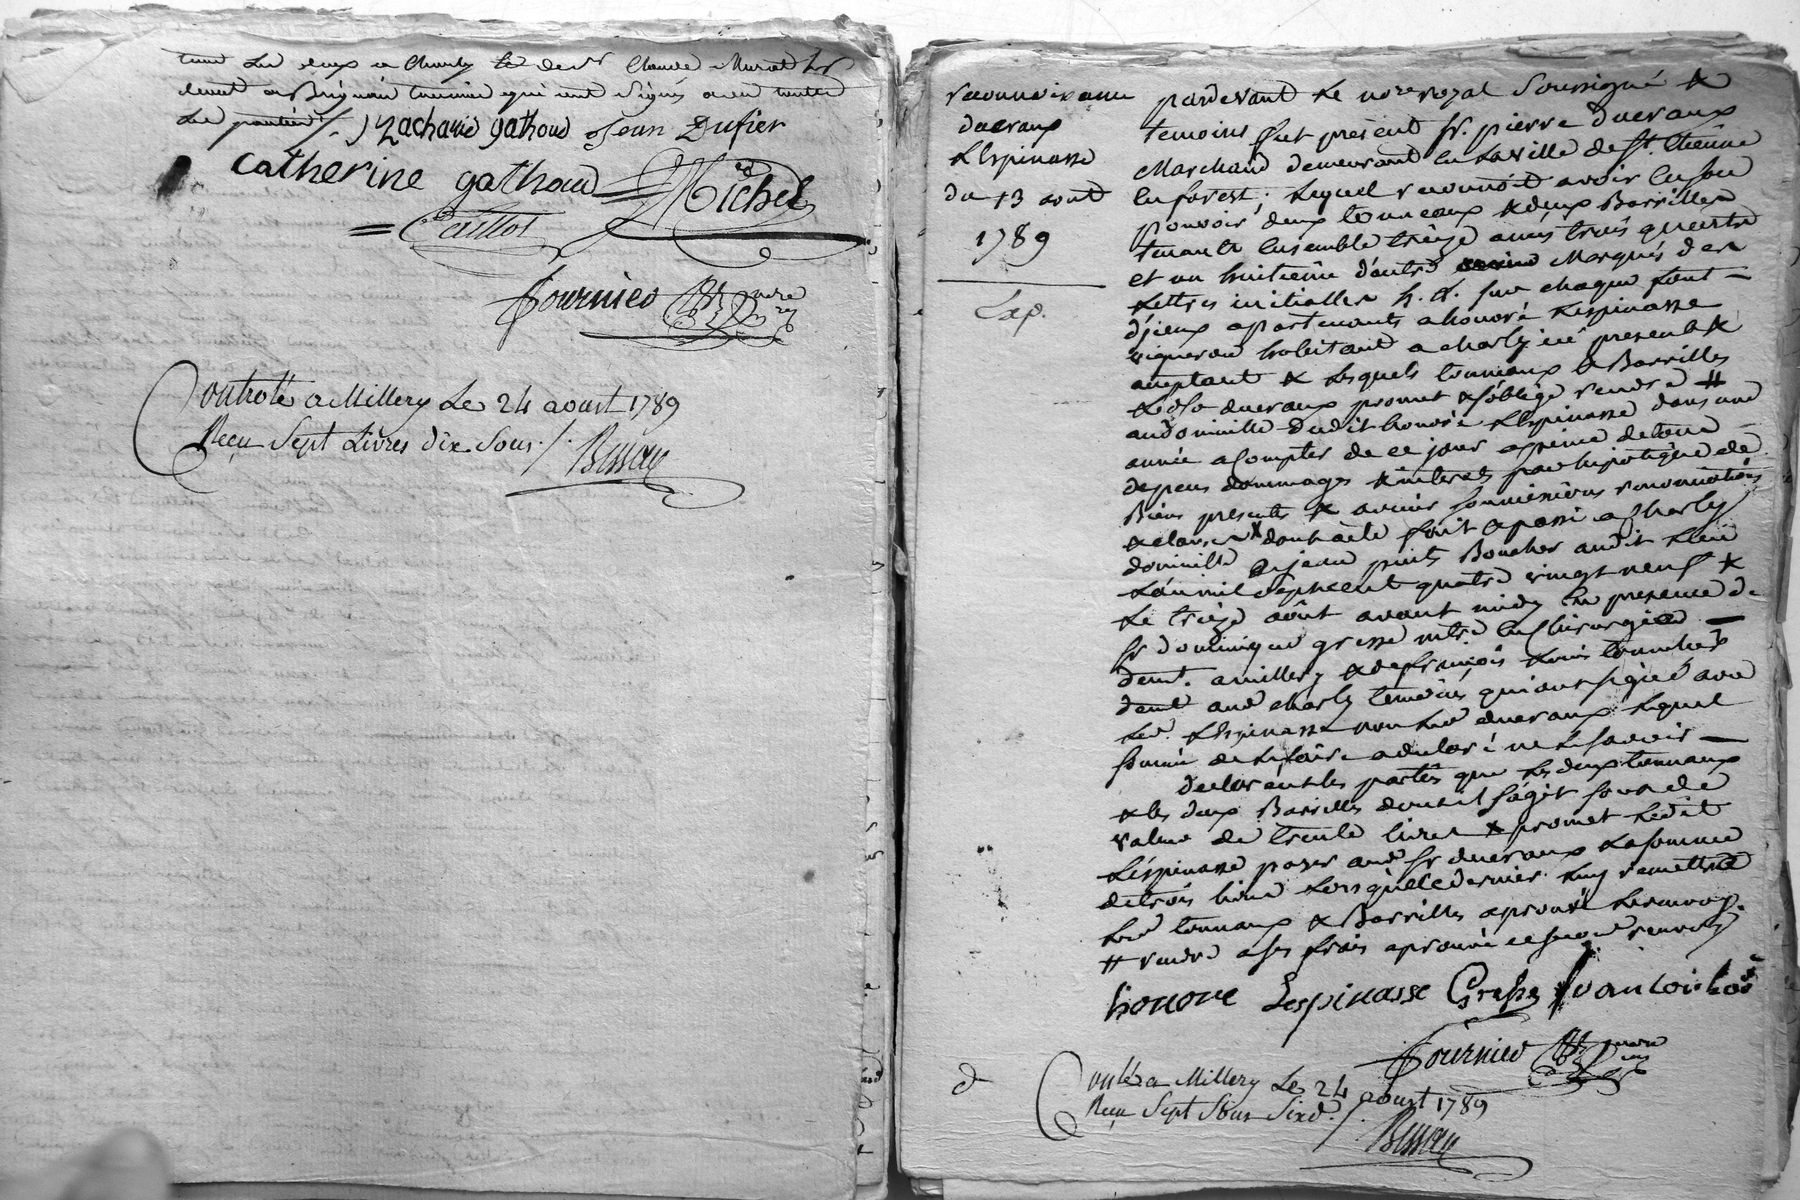 tous les deux a Charly le de Sr Claude Murat
demt a Brignais temoins qui ont signés avec toutes
les parties /. Zacharie gathoud Jean Dufier
Catherine gathoud Michel
Caillot
Fournier nore
Controllé a Millery Le 24 aoust 1789
Reçu Sept Livres dix Sous /.
reconnoissance
ducraux
LEspinasse
du 13 aout
1789
Exp.
pardevant Le nore royal Soussigné &
temoins fut présent sr. pierre ducraux
Marchand demeurant en la ville de st. Etienne
en forest; Lequel reconnoit avoir en son
pouvoir deux tonneaux & deux Barrilles
tenants ensemble trèize anées trois quarts
et un huitieme d'autre Marqués des
Lettres initialles h. L. sur chaque font
d'jieux apartenants a honoré Lespinasse
vigneron habitant a charly ici present &
aceptant & Lesquels tonneaux & Barrilles
Led. sr ducraux promet & s'oblige rendre #
au domicille dudit honoré LEspinasse dans une
année a Compter de ce jour a peine de tous
depens dommages & interets par hipotèque de
Biens presents & avenir soumissions renonciations
& clauses dont acte fait & passé a Charly
domicille de jean pints Boucher audit Lieu
L'an mil sept cent quatre vingt neuf &
Le trèize août avant midy En presence de
sr dominique gresse mtre En Chirurgie
demt. a millery & de françois
demt aud charly temoins qui ont signé avec
Led. LEspinasse non Led ducraux Lequel
sommé de Le faire a declaré ne Le savoir
declarent les parties que Les deux tonneaux
& les deux Barrilles dont il s'agit sont de
valeur de trente livres & promet Ledit
Léspinasse payer aud sr ducraux La somme
de trois livres Lorsque Ce dernier Luy remettra
Les tonneaux & Barrilles aprouvé Le renvoy.
# rendre a ses frais aprouvé ce second renvoy
honore Lespinasse Gresse
Fournier nore
Conlé a Millery Le 24 aoust 1789
Reçu Sept Sous Six d. /.